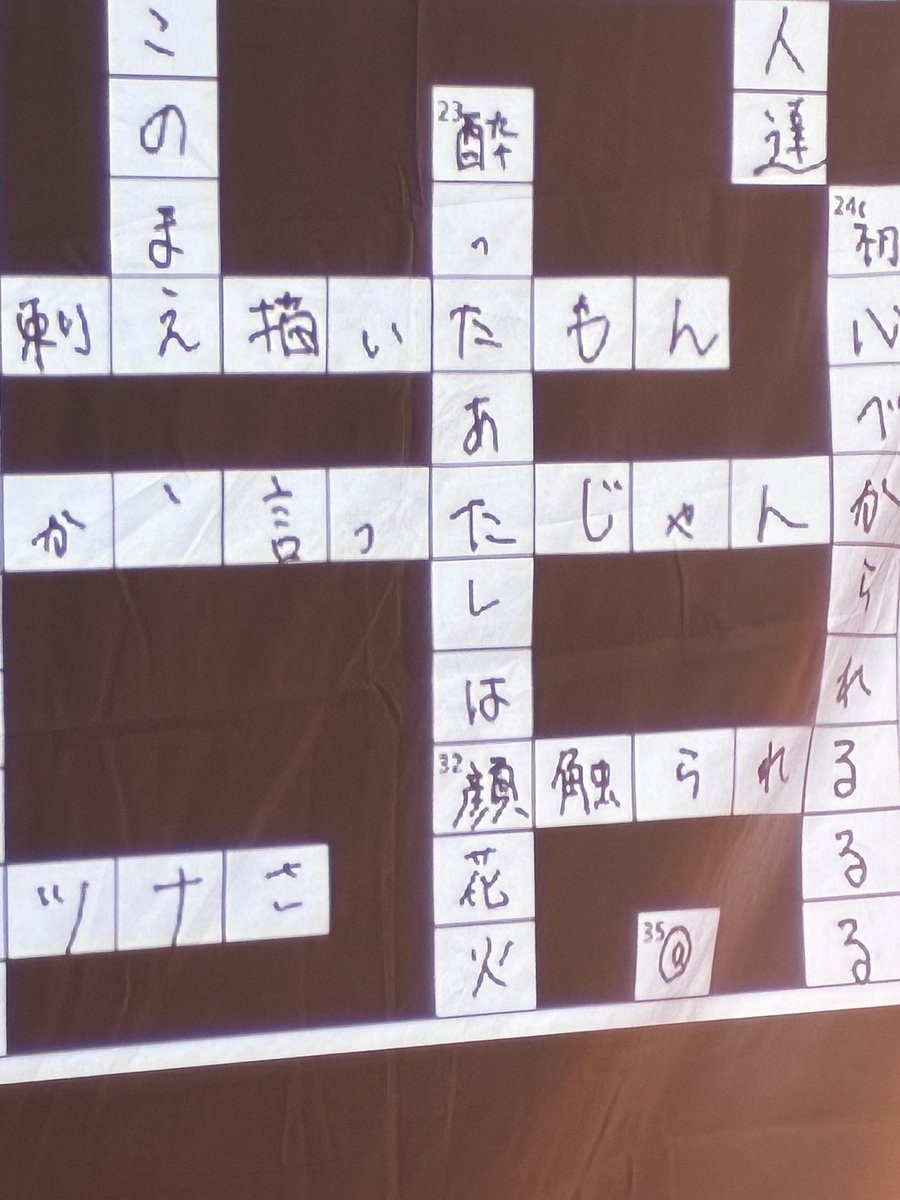 このまえ
人達
23
酔ったあたしは顔花火
24
心べからられるるる
刺え描いたもん
が、言ったじゃん
32
顔触られる
ツナさ
35
@